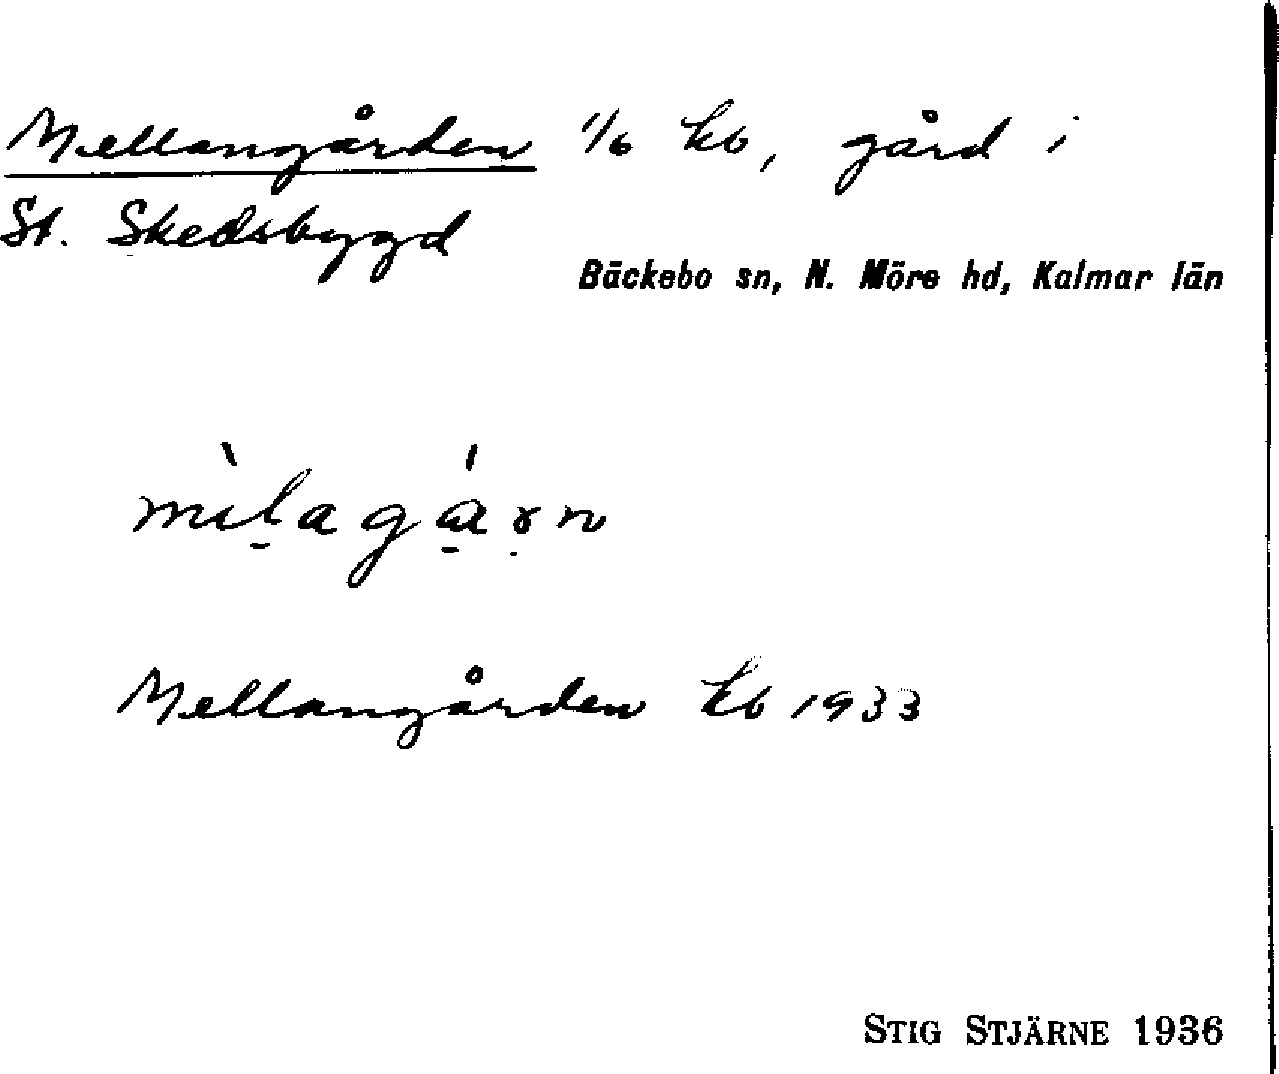 Mellangården 1/6 kb, gård i
St. Skedsbygd
Bäckebo sn, N. Möre hd, Kalmar län
Mellangården kb 1933
STIG STJÄRNE 1936